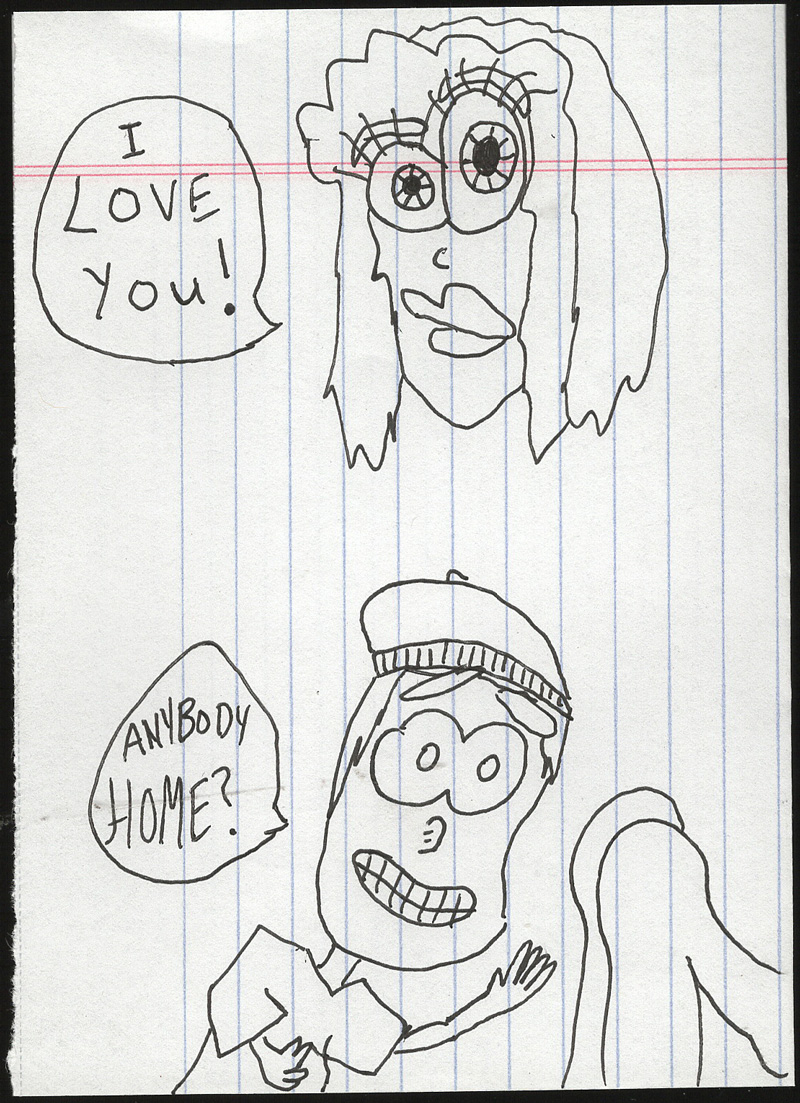 I
LOVE
You!
ANYBODY
HOME?